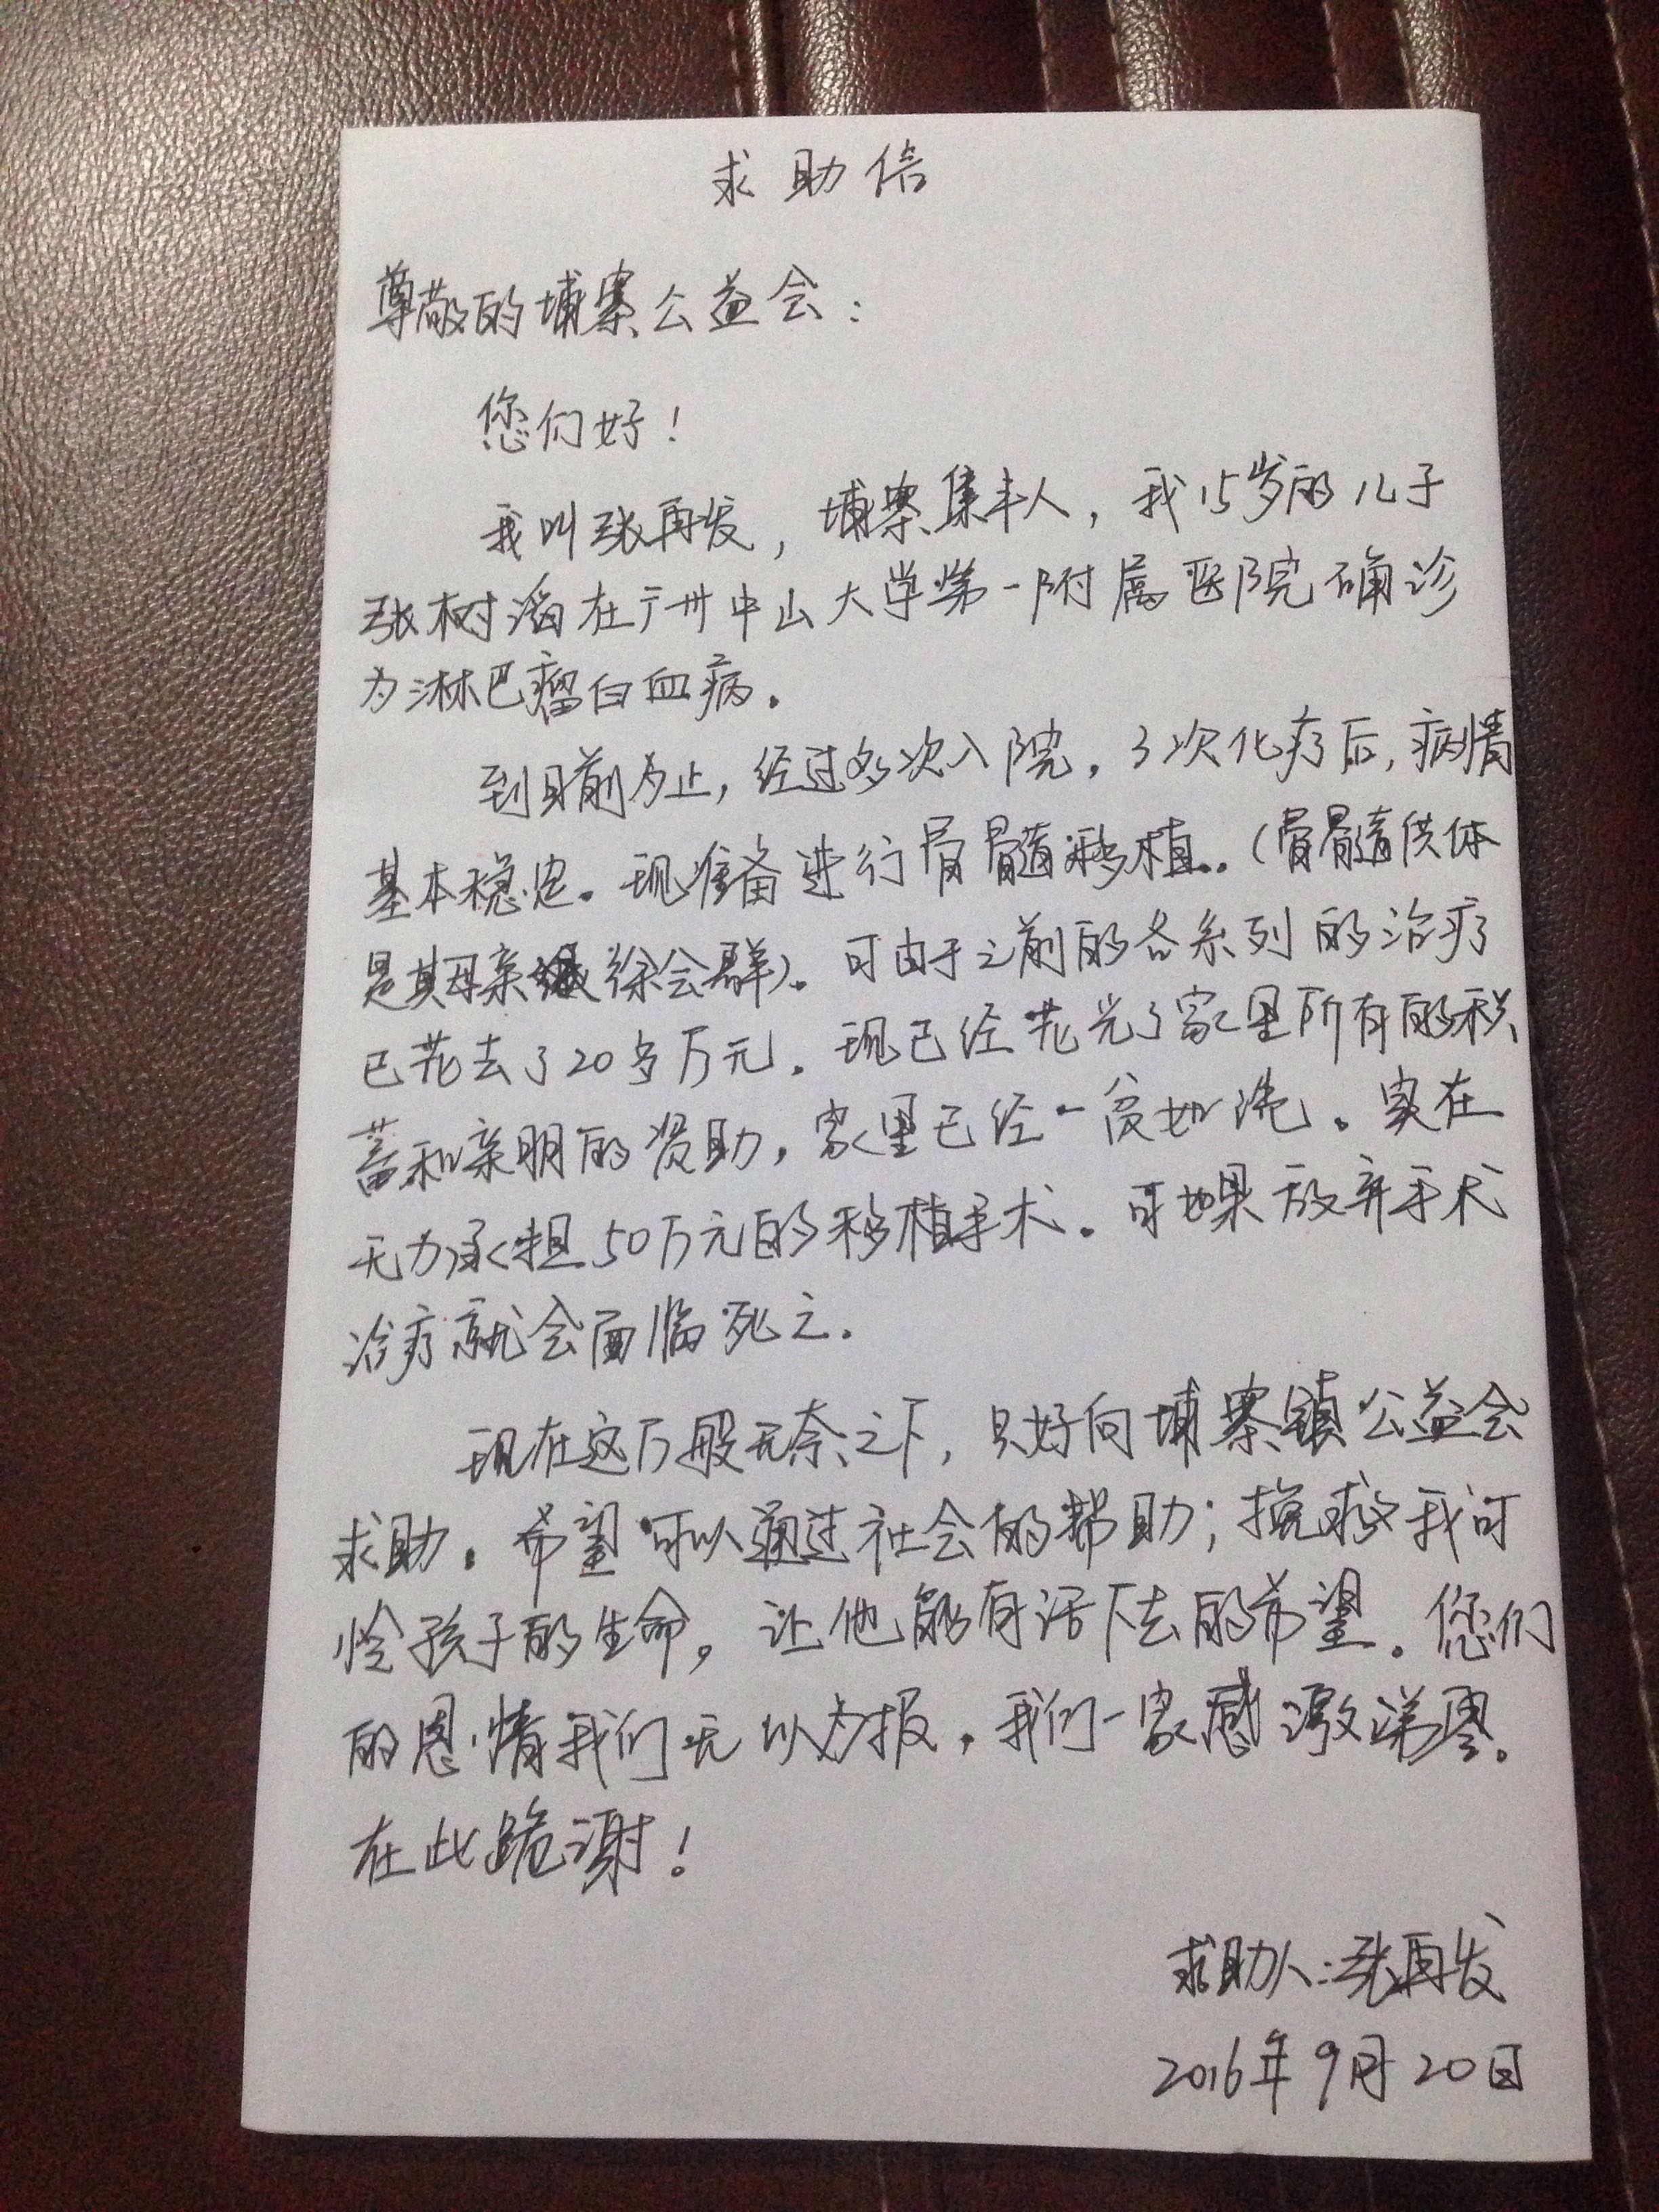 求助信
尊敬的埔寨公益会：
您们好！
我叫张再发，埔寨集丰人，我15岁的儿子
张树滔在广州中山大学第一附属医院确诊
为淋巴瘤白血病。
到目前为止，经过多次入院，3次化疗后，病情
基本稳定。现准备进行骨髓移植。（骨髓供体
是其母亲徐会群）。可由于之前的各系列的治疗
已花去了20多万元。现已经花光了家里所有的积
蓄和亲朋的资助，家里已经一贫如洗。实在
无力承担50万元的移植手术。可如果放弃手术
治疗就会面临死亡。
现在这万般无奈之下，只好向埔寨镇公益会
求助。希望可以通过社会的帮助；挽救我可
怜孩子的生命，让他能有活下去的希望。您们
的恩情我们无以为报，我们一家感激涕零。
在此跪谢！
求助人：张再发
2016年9月20日